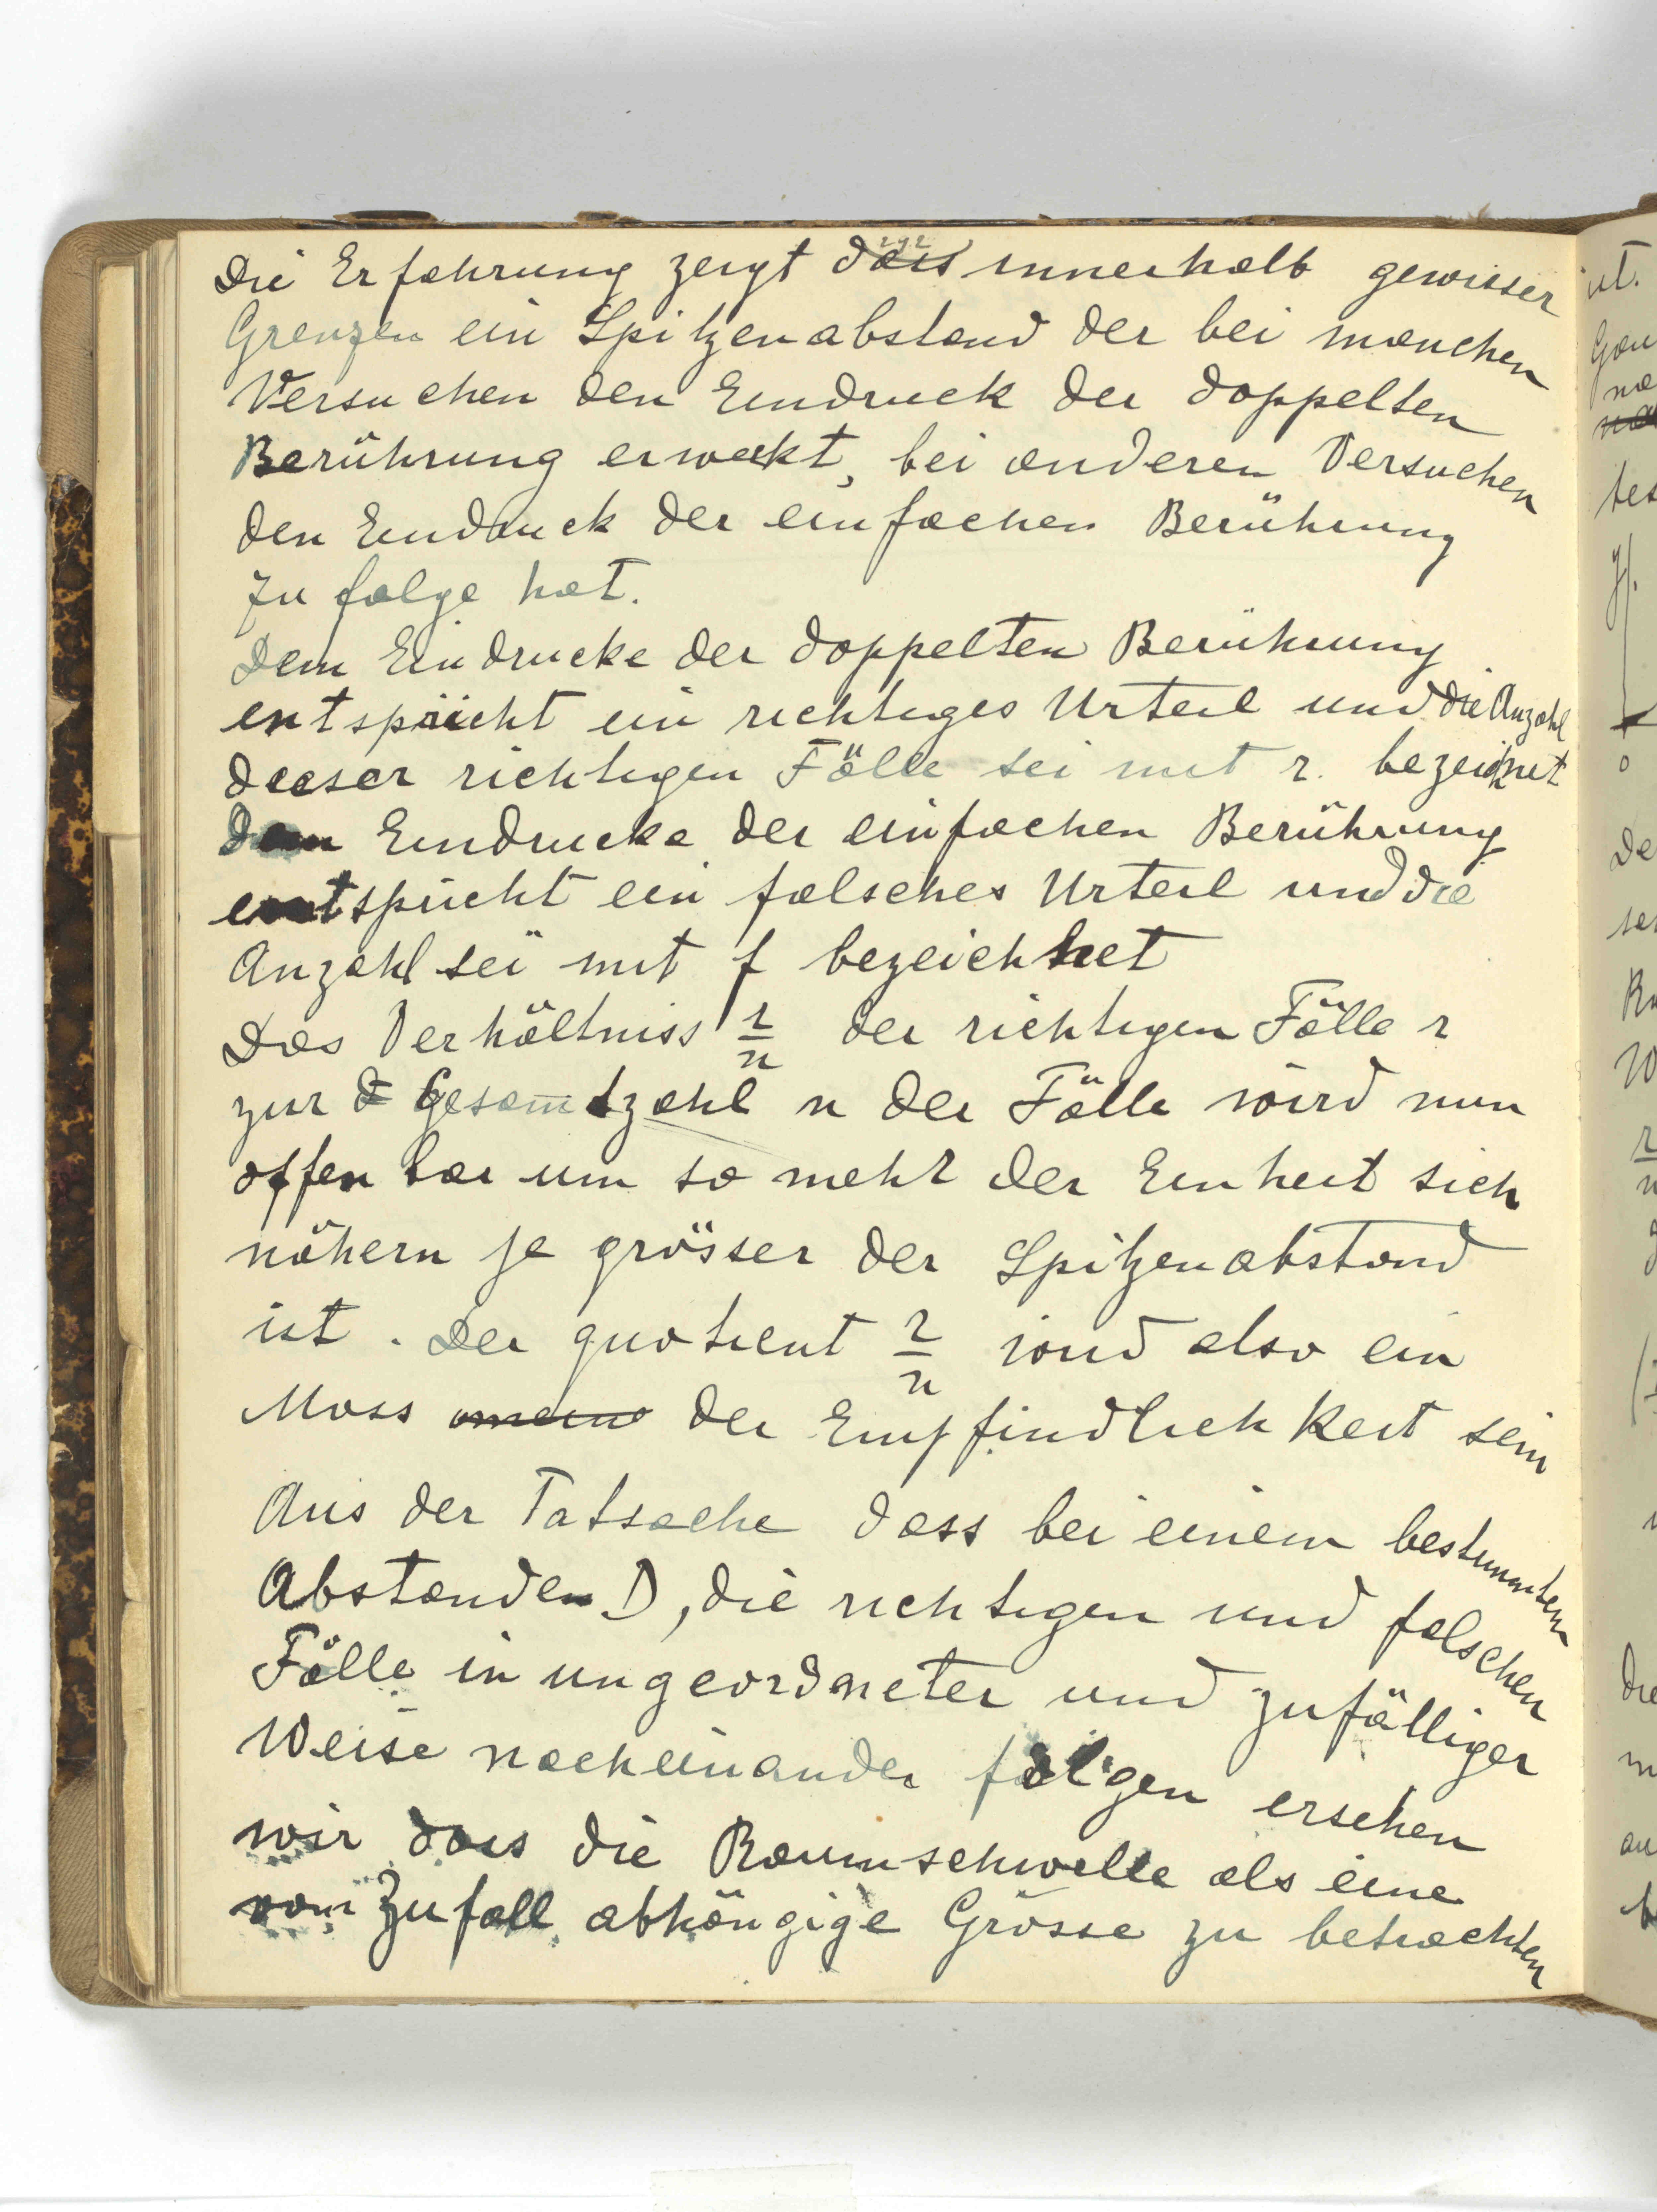 Die Erfahrung zeigt dass innerhalb gewisser
Grenzen ein Spitzenabstand der bei manchen
Versuchen den Eindruck der doppelten
Berührung erweckt, bei anderen Versuchen
den Eindruck der einfachen Berührung
zu folge hat.
Dem Eindrucke der doppelten Berührung
entspricht ein richtiges Urteil und die Anzahl
dieser richtigen Fälle sei mit r. bezeichnet
Dem Eindrucke der einfachen Berührung
entspricht ein falsches Urteil und die
Anzahl sei mit f bezeichnet
Das Verhältniss r/n der richtigen Fälle r
zur Gesamtzahl n der Fälle wird nun
offenbar um so mehr der Einheit sich
nähern je grösser der Spitzenabstand
ist. Der quotient r/n wird also ein
Mass der Empfindlichkeit sein
Aus der Tatsache dass bei einem bestimmten
Abstanden D, die richtigen und falschen
Fälle in ungeordneter und zufälliger
Weise nacheinander folgen ersehen
wir dass die Raumschwelle als eine
vom Zufall abhängige Grösse zu betrachten
ist.